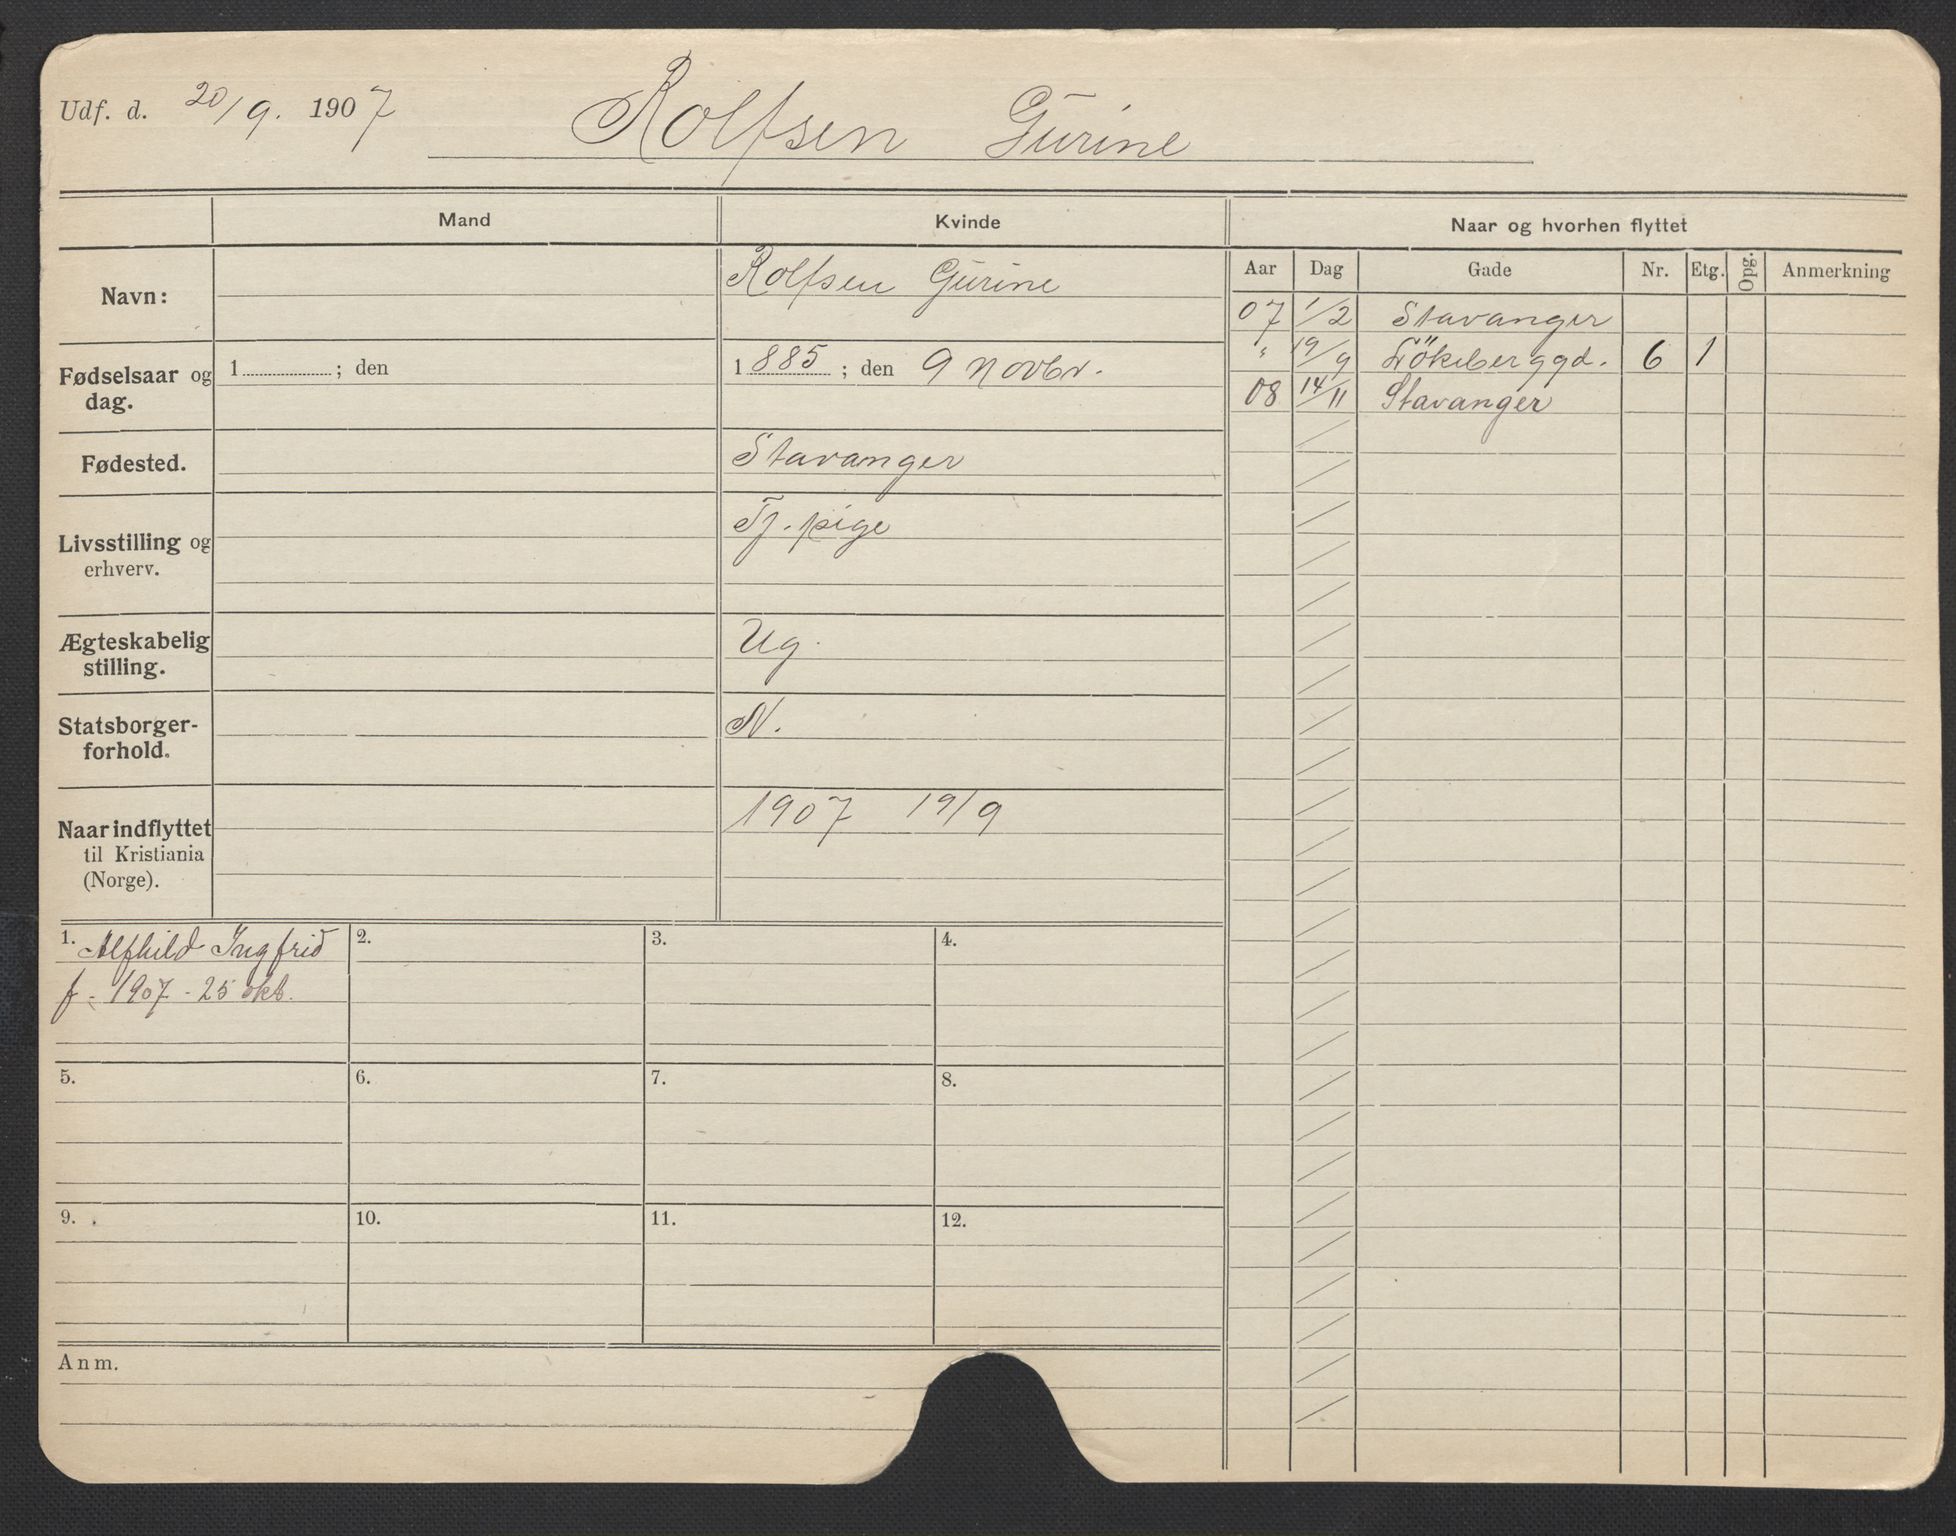 Udf. d. 20/9. 1907 Rolfsen Gurine
Mand Kvinde Naar og hvorhen flyttet
Aar Dag Gade Nr. Etg. Opg. Anmerkning
Navn: Rolfsen Gurine
07 1/2 Stavanger
" 19/9 Lökkeberggd. 6 1
08 14/11 Stavanger
Fødselsaar og dag. 1 ; den 1885 ; den 9 Novbr.
Fødested. Stavanger
Livsstilling og erhverv. Tj. pige
Ægteskabelig stilling. Ug.
Statsborger-
forhold. N.
Naar indflyttet 1907 19/9
til Kristiania
(Norge).
1. Alfhild Ingfrid
f. 1907 - 25 okt.
2.
3.
4.
5.
6.
7.
8.
9.
10.
11.
12.
Anm.